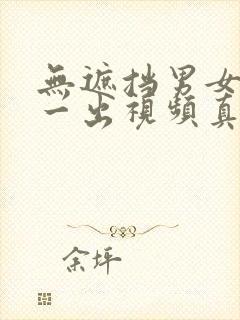 無遮挡男女
一出視頻真
余坪